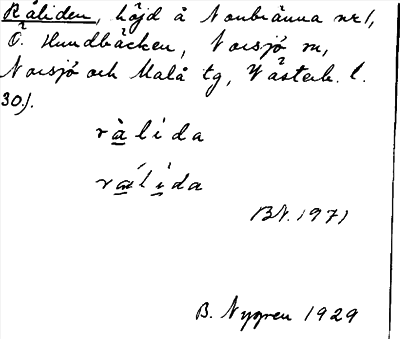 Råliden, höjd å Norrbränna nr 1,
Ö. Hundbäcken, Norsjö sn,
Norsjö och Malå tg, Västerb. l.
30).
ràlida
rálida
BN. 1971
B. Nygren 1929